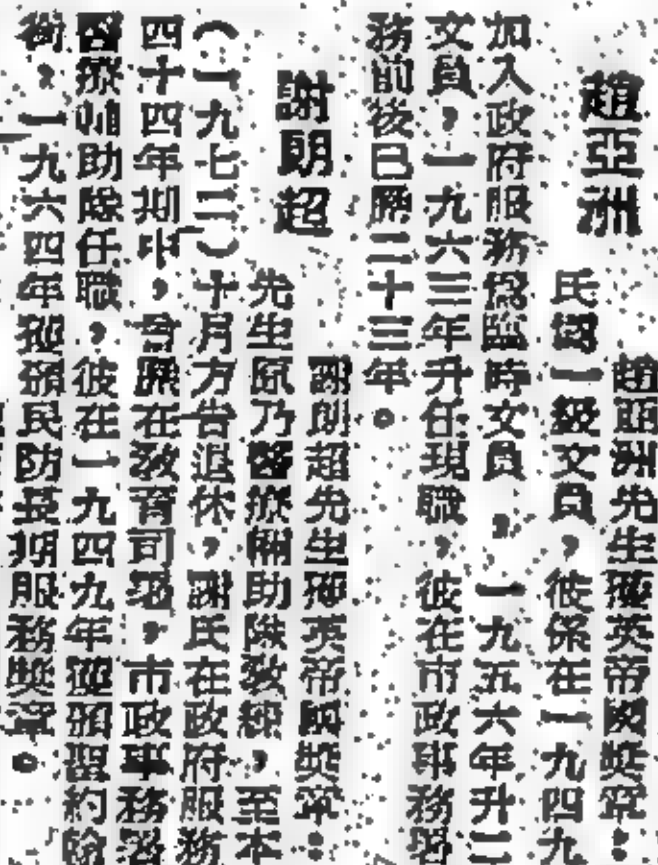 趙亞洲
趙亞洲先生獲英帝國獎章：
氏為一級文員，彼係在一九四九
加入政府服務為臨時文員，一九五六年升二
文員，一九六三年升任現職，彼在市政事務署
務前後已歷二十三年。
謝朗超
謝朗超先生獲英帝國獎章：
先生原乃醫療輔助隊教練，至本
（一九七二）十月方告退休，謝氏在政府服務
四十四年期中，曾歷在教育司署，市政事務署
醫療輔助隊任職，彼在一九四九年獲頒聖約翰
銜，一九六四年獲頒民防長期服務獎章。